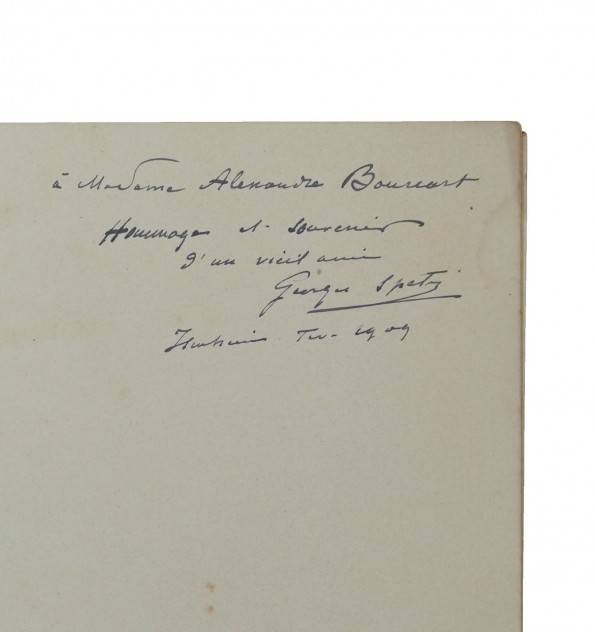 à Madame Alexandre Bourcart
Hommages et souvenir
d'un vieil ami
Georges Spetz
Isenheim 1909